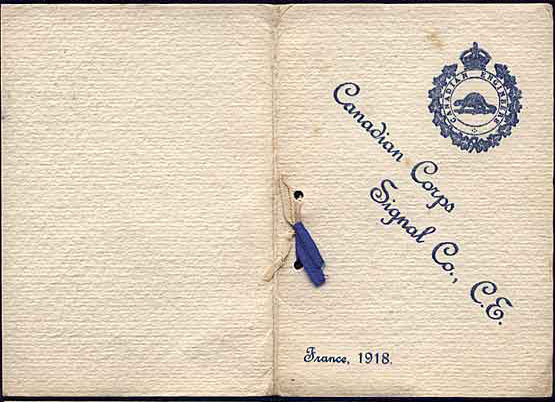 CANADIAN ENGINEERS
Canadian Corps
Signal Co., C.E.
France, 1918.